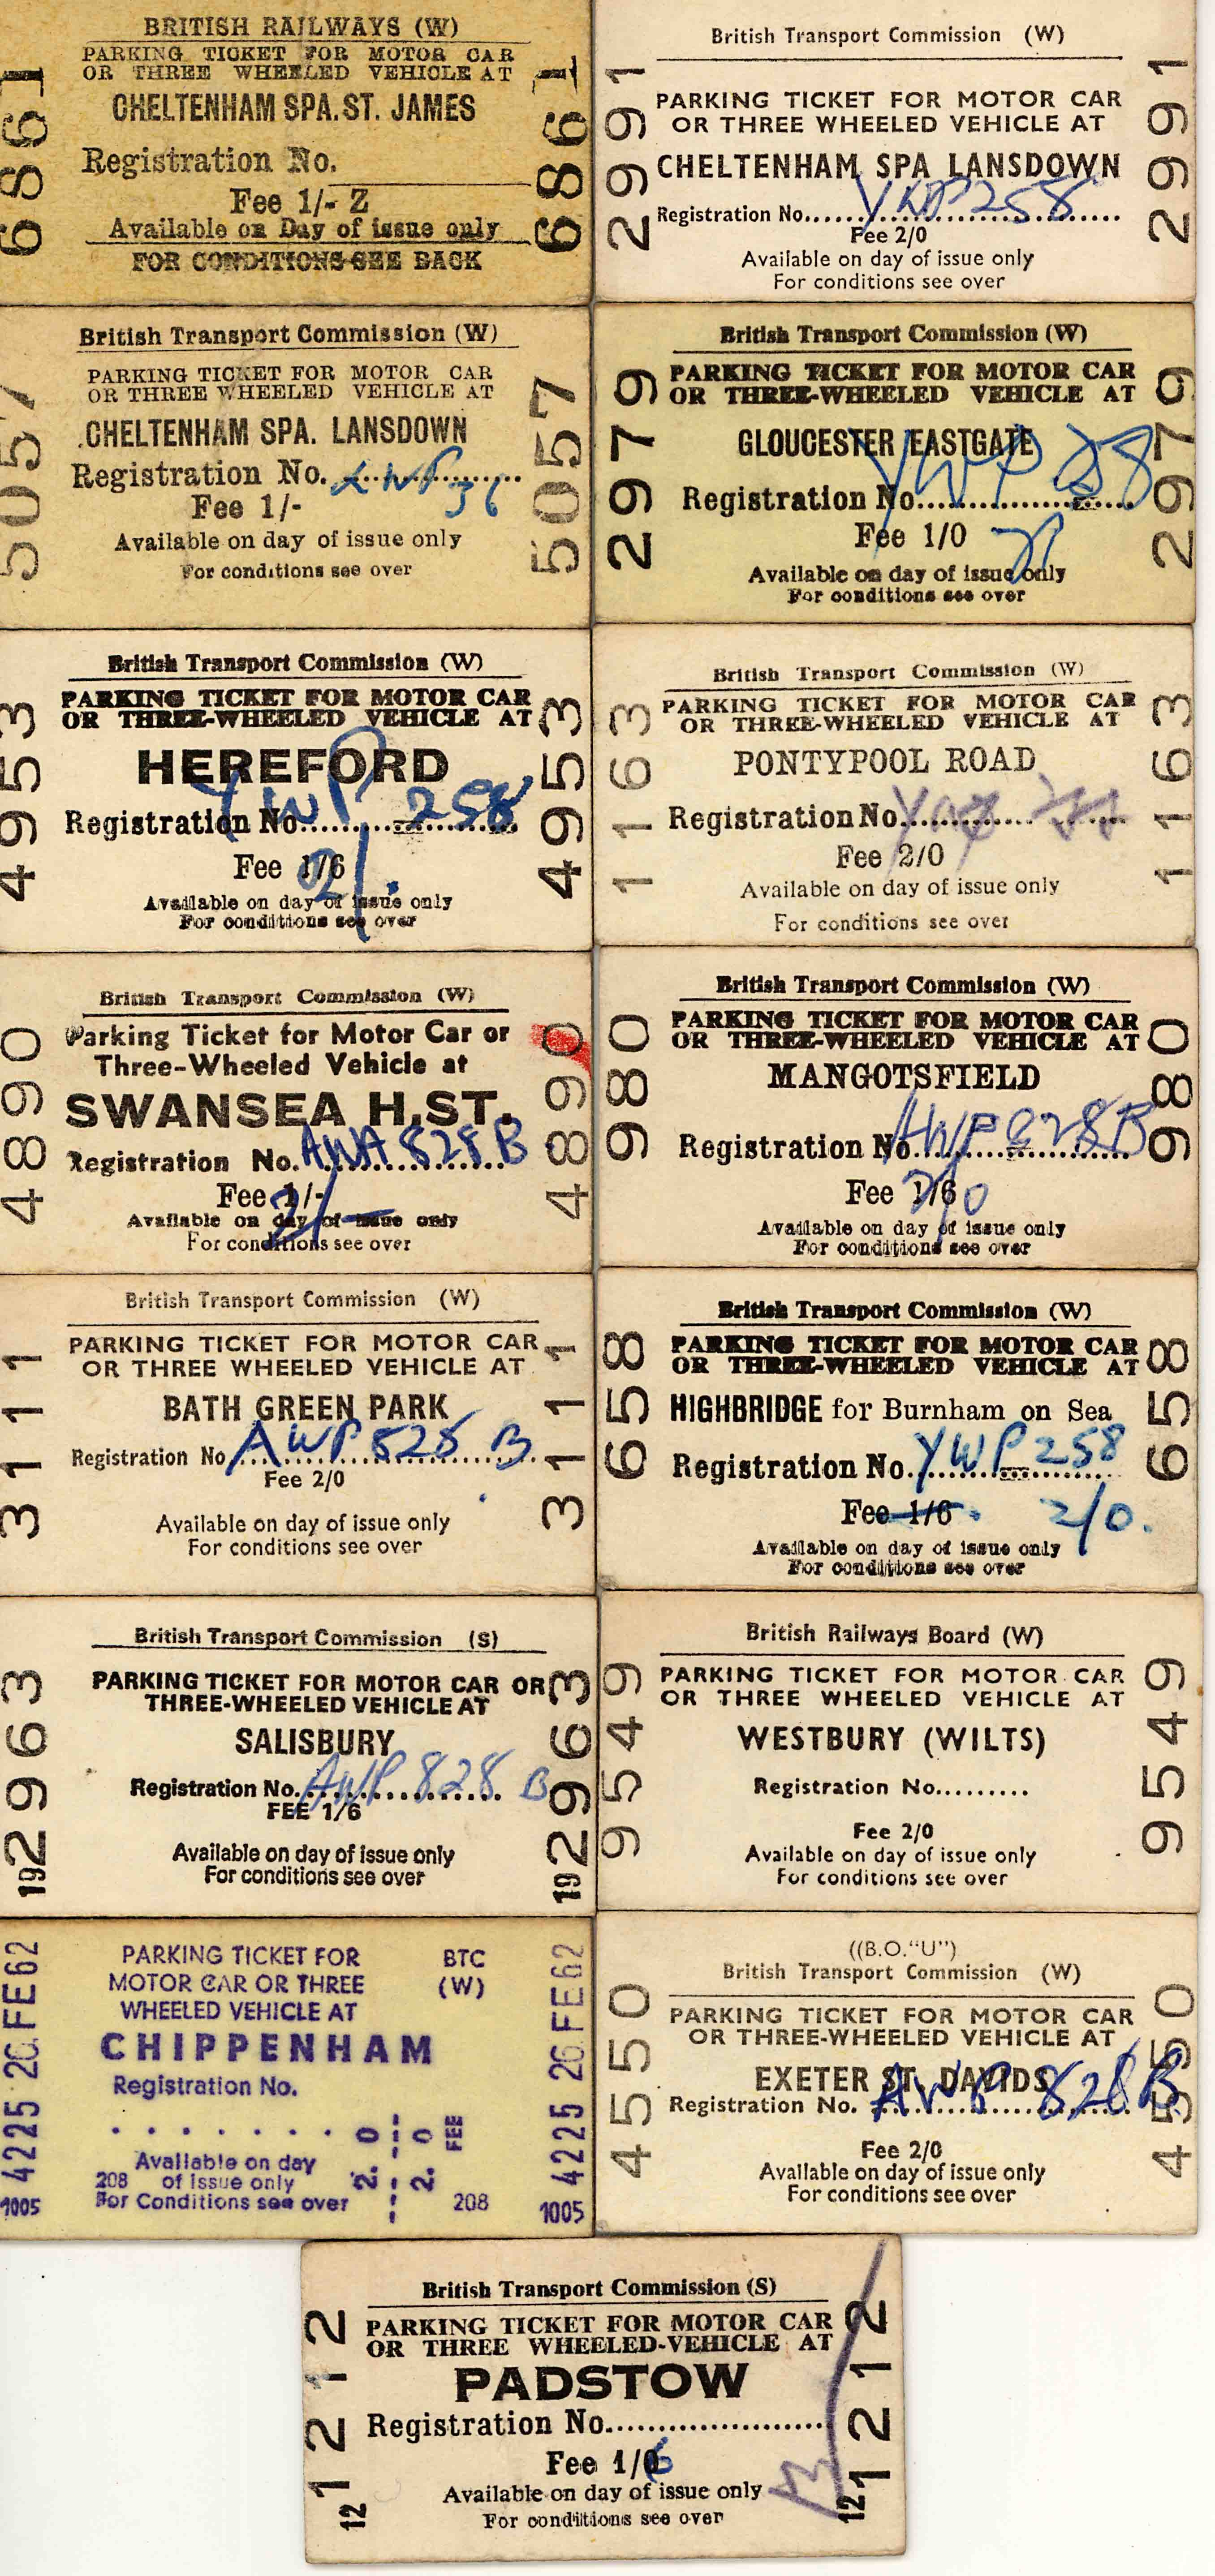 BRITISH RAILWAYS (W)
PARKING TICKET FOR MOTOR CAR
OR THREE WHEELED VEHICLE AT
CHELTENHAM SPA. ST. JAMES
Registration No.
Fee 1/- Z
Available on Day of issue only
FOR CONDITIONS SEE BACK
6861
6861
British Transport Commission (W)
PARKING TICKET FOR MOTOR CAR
OR THREE WHEELED VEHICLE AT
CHELTENHAM SPA LANSDOWN
Registration No. YWP 258
Fee 2/0
Available on day of issue only
For conditions see over
2991
2991
British Transport Commission (W)
PARKING TICKET FOR MOTOR CAR
OR THREE WHEELED VEHICLE AT
CHELTENHAM SPA. LANSDOWN
Registration No.
Fee 1/-
Available on day of issue only
For conditions see over
5057
5057
British Transport Commission (W)
PARKING TICKET FOR MOTOR CAR
OR THREE-WHEELED VEHICLE AT
GLOUCESTER EASTGATE
Registration No. YWP
Fee 1/0
Available on day of issue only
For conditions see over
2979
2979
British Transport Commission (W)
PARKING TICKET FOR MOTOR CAR
OR THREE-WHEELED VEHICLE AT
HEREFORD
Registration No. YWP 258
Fee 1/6 2/.
Available on day of issue only
For conditions see over
4953
4953
British Transport Commission (W)
PARKING TICKET FOR MOTOR CAR
OR THREE-WHEELED VEHICLE AT
PONTYPOOL ROAD
Registration No.
Fee 2/0
Available on day of issue only
For conditions see over
1163
1163
British Transport Commission (W)
Parking Ticket for Motor Car or
Three-Wheeled Vehicle at
SWANSEA H.ST.
Registration No. AWA 828 B
Fee 1/- 2/-
Available on day of issue only
For conditions see over
4890
4890
British Transport Commission (W)
PARKING TICKET FOR MOTOR CAR
OR THREE-WHEELED VEHICLE AT
MANGOTSFIELD
Registration No. AWP 828B
Fee 1/6 2/0
Available on day of issue only
For conditions see over
980
980
British Transport Commission (W)
PARKING TICKET FOR MOTOR CAR
OR THREE WHEELED VEHICLE AT
BATH GREEN PARK
Registration No. AWP 828 B
Fee 2/0
Available on day of issue only
For conditions see over
3111
3111
British Transport Commission (W)
PARKING TICKET FOR MOTOR CAR
OR THREE-WHEELED VEHICLE AT
HIGHBRIDGE for Burnham on Sea
Registration No. YWP 258
Fee 1/6 2/0.
Available on day of issue only
For conditions see over
658
658
British Transport Commission (S)
PARKING TICKET FOR MOTOR CAR OR
THREE-WHEELED VEHICLE AT
SALISBURY
Registration No. AWP 828 B
FEE 1/6
Available on day of issue only
For conditions see over
192963
192963
British Railways Board (W)
PARKING TICKET FOR MOTOR CAR
OR THREE WHEELED VEHICLE AT
WESTBURY (WILTS)
Registration No.........
Fee 2/0
Available on day of issue only
For conditions see over
9549
9549
PARKING TICKET FOR BTC
MOTOR CAR OR THREE (W)
WHEELED VEHICLE AT
CHIPPENHAM
Registration No.
Available on day
208 of issue only
For Conditions see over 208
2.0 2.0 FEE
1005 4225 26.FE62
1005 4225 26.FE62
((B.O."U")
British Transport Commission (W)
PARKING TICKET FOR MOTOR CAR
OR THREE-WHEELED VEHICLE AT
EXETER ST. DAVIDS
Registration No. AWP 828B
Fee 2/0
Available on day of issue only
For conditions see over
4550
4550
British Transport Commission (S)
PARKING TICKET FOR MOTOR CAR
OR THREE WHEELED-VEHICLE AT
PADSTOW
Registration No......................
Fee 1/6
Available on day of issue only
For conditions see over
121212
121212